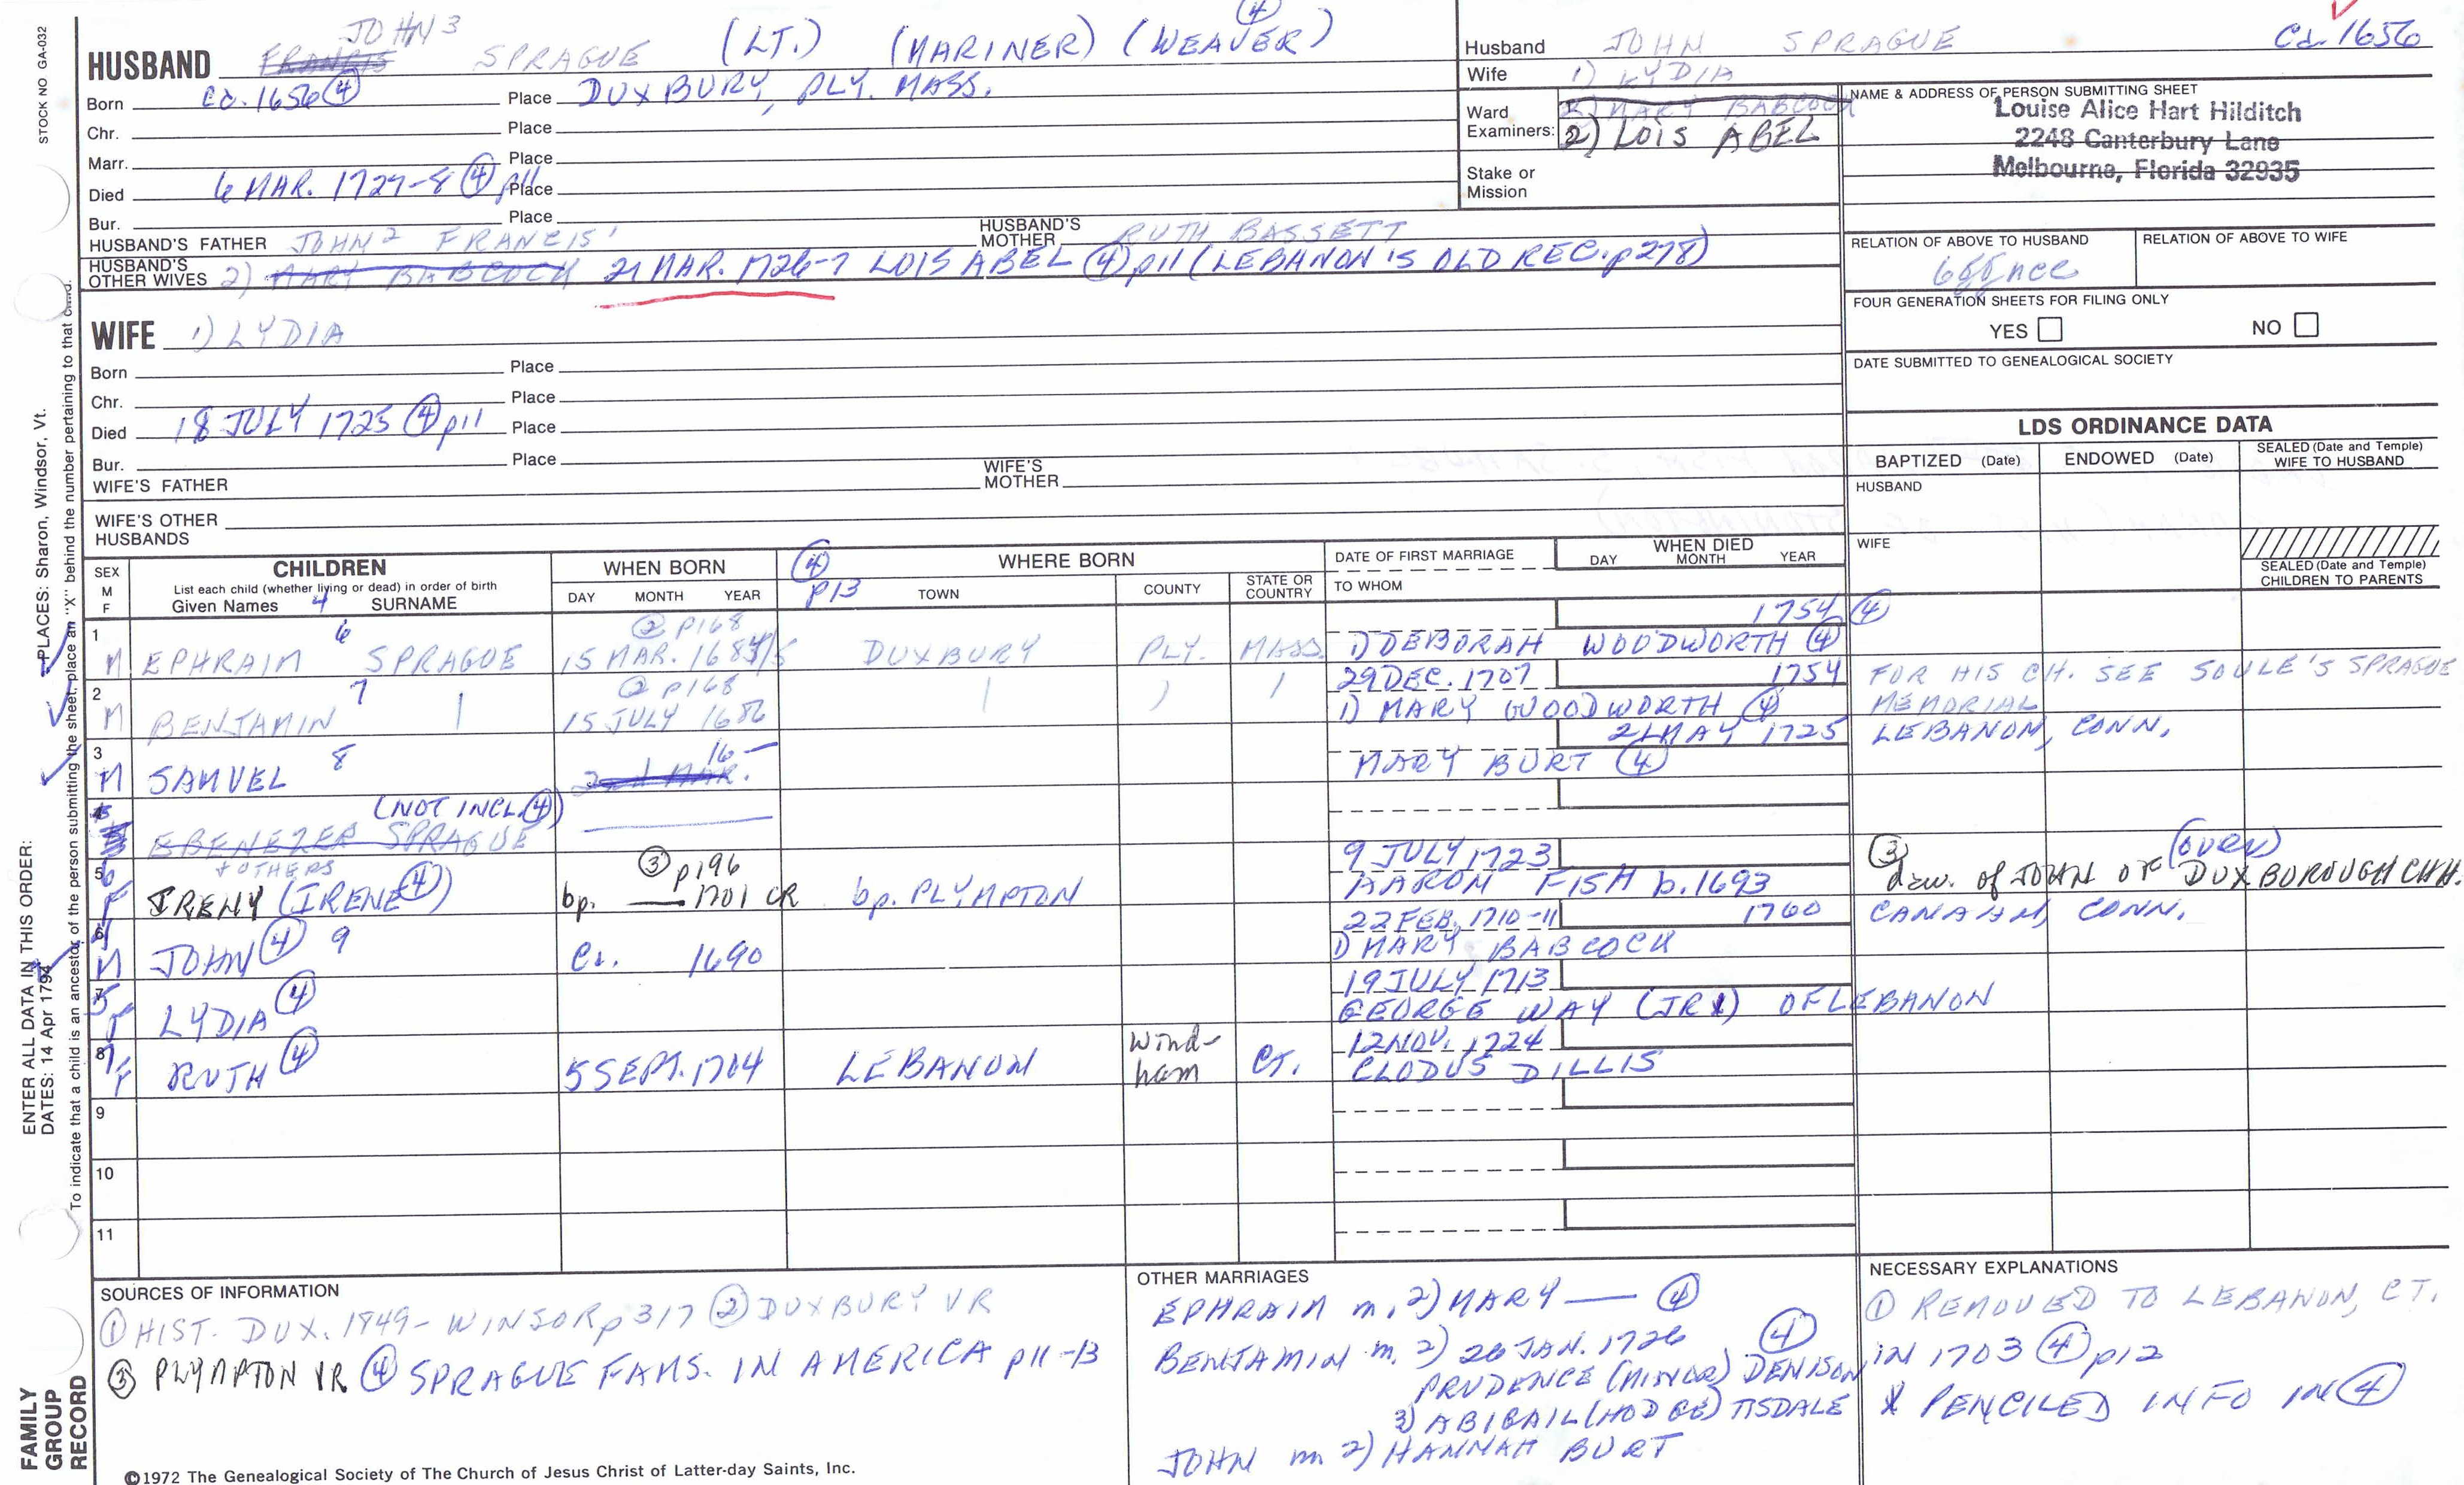 STOCK NO GA-032
HUSBAND FRANCIS JOHN 3 SPRAGUE (LT.) (MARINER) (WEAVER) ④
Born Ca. 1656 ④ Place DUXBURY, PLY. MASS.
Chr. Place
Marr. Place
Died 6 MAR. 1727-8 ④ p11 Place
Bur. Place
HUSBAND'S FATHER JOHN 2 FRANCIS 1 HUSBAND'S MOTHER RUTH BASSETT
HUSBAND'S OTHER WIVES 2) MARY BABCOCK 21 MAR. 1726-7 LOIS ABEL ④ p11 (LEBANON IS OLD REC. p278)
WIFE 1) LYDIA
Born Place
Chr. Place
Died 18 JULY 1725 ④ p11 Place
Bur. Place
WIFE'S FATHER WIFE'S MOTHER
WIFE'S OTHER HUSBANDS
Husband JOHN SPRAGUE Ca. 1656
Wife 1) LYDIA
2) MARY BABCOCK
Ward Examiners: 2) LOIS ABEL
Stake or Mission
NAME & ADDRESS OF PERSON SUBMITTING SHEET
Louise Alice Hart Hilditch
2248 Canterbury Lane
Melbourne, Florida 32935
RELATION OF ABOVE TO HUSBAND RELATION OF ABOVE TO WIFE
FOUR GENERATION SHEETS FOR FILING ONLY
YES NO
DATE SUBMITTED TO GENEALOGICAL SOCIETY
LDS ORDINANCE DATA
BAPTIZED (Date) ENDOWED (Date) SEALED (Date and Temple) WIFE TO HUSBAND
HUSBAND
WIFE
SEALED (Date and Temple) CHILDREN TO PARENTS
SEX M F
CHILDREN
List each child (whether living or dead) in order of birth
Given Names 4 SURNAME
WHEN BORN
DAY MONTH YEAR
④ p13 WHERE BORN
TOWN COUNTY STATE OR COUNTRY
DATE OF FIRST MARRIAGE
TO WHOM
WHEN DIED
DAY MONTH YEAR
1 M EPHRAIM 6 SPRAGUE ② p168 15 MAR. 1684/5 DUXBURY PLY. MASS. 1754 ④
1) DEBORAH WOODWORTH ④
2 M BENJAMIN 7 ② p168 15 JULY 1686 29 DEC. 1707 1754 FOR HIS CH. SEE SOULE'S SPRAGUE MEMORIAL
1) MARY WOODWORTH ④
3 M SAMUEL 8 16— 21 MAY 1725 LEBANON, CONN.
MARY BURT ④
(NOT INCL. ④)
EBENEZER SPRAGUE
+ OTHERS
5 F IRENY (IRENE ④) ③ p196 bp. — 1701 CR bp. PLYMPTON 9 JULY 1723 ③ (OVER)
AARON FISH b. 1693 dau. of JOHN OF DUXBOROUGH CHH.
6 M JOHN ④ 9 Ca. 1690 22 FEB. 1710-11 1760 CANAAN, CONN.
1) MARY BABCOCK
7 F LYDIA ④ 19 JULY 1713
GEORGE WAY (JR) OF LEBANON
8 F RUTH ④ 5 SEPT. 1704 LEBANON Windham CT. 12 NOV. 1724
CLODUS DILLIS
9
10
11
SOURCES OF INFORMATION
① HIST. DUX. 1849- WINSOR p317 ② DUXBURY VR
③ PLYMPTON VR ④ SPRAGUE FAMS. IN AMERICA p11-13
OTHER MARRIAGES
EPHRAIM m. 2) MARY — ④
BENJAMIN m. 2) 26 JAN. 1726 ④
PRUDENCE (MINOR) DENISON
3) ABIGAIL (HODGE) TISDALE
JOHN m 2) HANNAH BURT
NECESSARY EXPLANATIONS
① REMOVED TO LEBANON, CT.
IN 1703 ④ p12
* PENCILED INFO IN ④
©1972 The Genealogical Society of The Church of Jesus Christ of Latter-day Saints, Inc.
FAMILY GROUP RECORD
ENTER ALL DATA IN THIS ORDER:
DATES: 14 Apr 1794
PLACES: Sharon, Windsor, Vt.
To indicate that a child is an ancestor of the person submitting the sheet, place an "X" behind the number pertaining to that child.